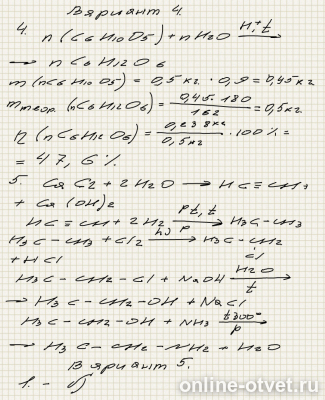 Вариант 4.
4. n(C6H10O5) + nH2O H,+ t
→ n C6H12O6
m(nC6H10O5) = 0,5кг. · 0,9 = 0,45кг
mтеор. (nC6H12O6) = 0,45. 180 / 162 = 0,5кг.
η (nC6H12O6) = 0,238кг / 0,5кг · 100% =
= 47,6 %.
5. CaC2 + 2H2O → HC≡CH,
+ Ca(OH)2
HC≡CH + 2H2 Pt, t p H3C-CH3
H3C-CH3 + Cl2 hυ → H3C-CH2
Cl
+ HCl
H3C-CH2-Cl + NaOH H2O t
→ H3C-CH2-OH + NaCl
H3C-CH2-OH + NH3 t300° p
→ H3C-CH2-NH2 + H2O
Вариант 5.
1. - б
online-otvet.ru